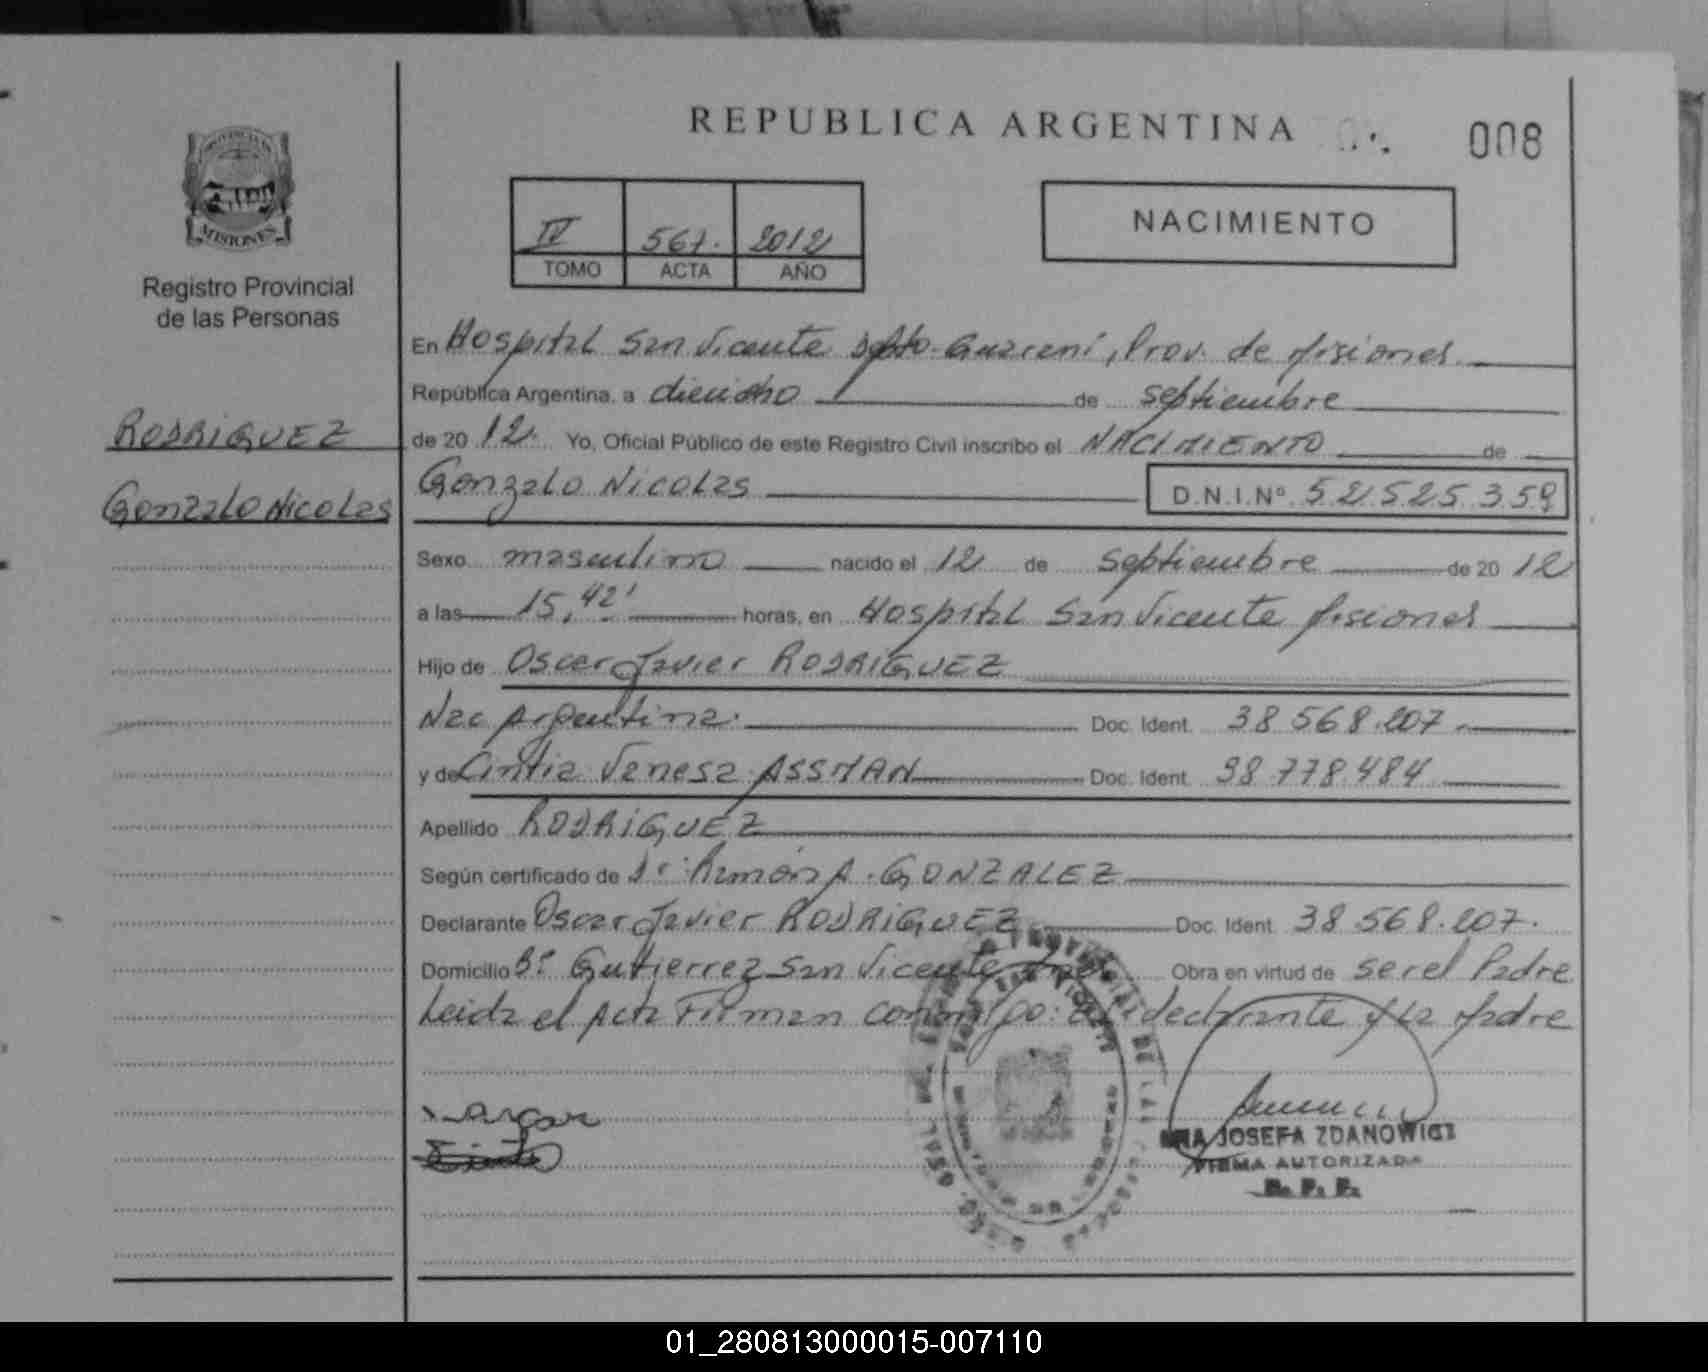 REPUBLICA ARGENTINA
008
PROVINCIA DE
MISIONES
Registro Provincial
de las Personas
IV 567. 2012
TOMO ACTA AÑO
NACIMIENTO
En Hospital San Vicente Dpto. Guaraní, Prov. de Misiones
República Argentina, a dieciocho de septiembre
RODRIGUEZ
de 20 12. Yo, Oficial Público de este Registro Civil inscribo el NACIMIENTO de
Gonzalo Nicolas
Gonzalo Nicolas D.N.I.Nº 52.525.359
Sexo masculino nacido el 12 de septiembre de 20 12
a las 15,42' horas, en Hospital San Vicente Misiones
Hijo de Oscar Javier RODRIGUEZ
Nac Argentina. Doc. Ident. 38.568.207.
y de Cintia Vanesa ASSMAN Doc. Ident. 38.778.484
Apellido RODRIGUEZ
Según certificado de Dr. Ramón A. GONZALEZ
Declarante Oscar Javier RODRIGUEZ Doc. Ident. 38.568.207.
Domicilio Bº Gutierrez San Vicente Obra en virtud de ser el Padre
Leida el Acta Firman conmigo: el declarante y la Madre
JOSEFA ZDANOWICZ
FIRMA AUTORIZADA
R. P. P.
01_280813000015-007110